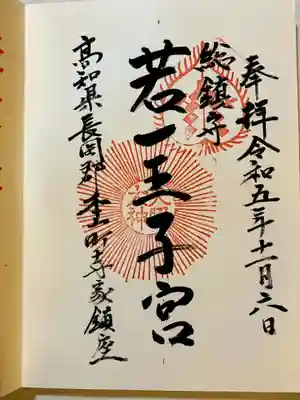 奉拝令和五年十一月六日
総鎮守
若一王子宮
高知県長岡郡本山町寺家鎮座